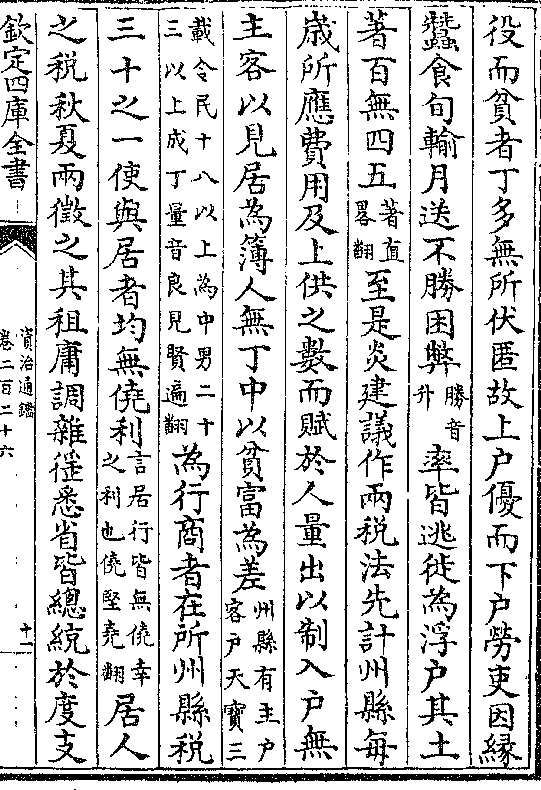 役而貧者丁多無所伏匿故上户優而下户勞吏因緣
蠶食旬輸月送不勝困弊勝音升率皆逃徙為浮户其土
著百無四五著直畧翻至是炎建議作兩税法先計州縣每
歳所應費用及上供之數而賦於人量出以制入户無
主客以見居為簿人無丁中以貧富為差州縣有主户客户天寶三
載令民十八以上為中男二十三以上成丁量音良見賢遍翻為行商者在所州縣税
三十之一使與居者均無僥利言居行皆無僥幸之利也僥堅堯翻居人
之税秋夏兩徵之其租庸調雜徭悉省皆總統於度支
欽定四庫全書
資治通鑑
卷二百二十六
十一